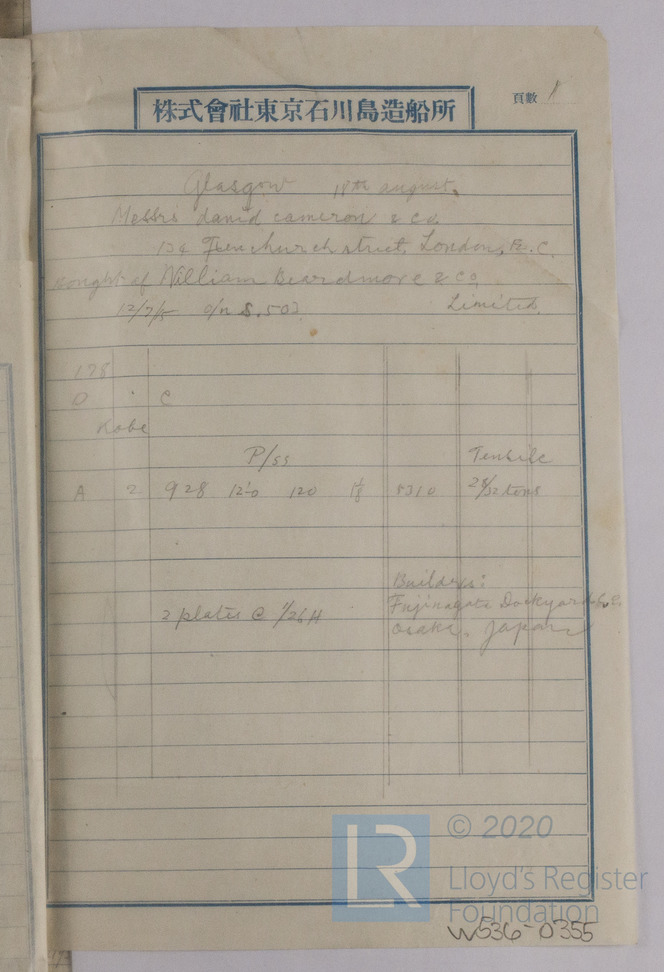 株式會社東京石川島造船所
頁數 1
Glasgow 18th august.
Messrs david cameron & Co.
Fenchurch street, London, E.C.
bought of William Beardmore & Co
Limited.
12/7/15 O/N S.503
178
D " C
Kobe
P/ss Tensile
A 2 928 12'-0 120 1 1/8 5310 28/32 tons
Builders:
2 plates @ Fujinagata Dockyard Co.
Osaka, Japan
© 2020
LR Lloyd's Register
Foundation
W536-0355